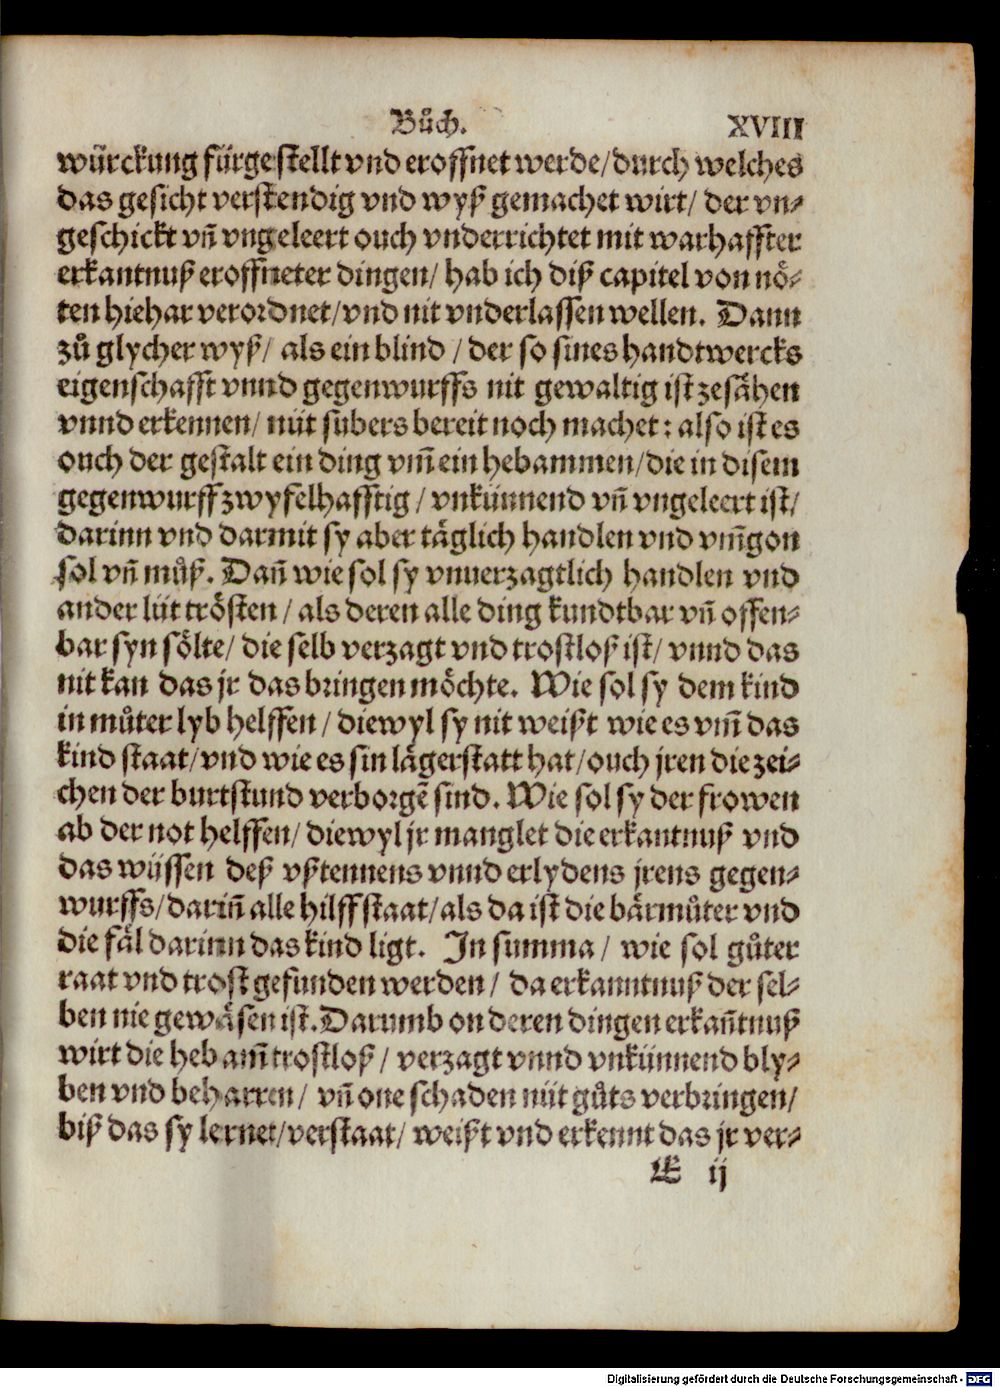 Bůch. XVIII
würckung fürgestellt vnd eroffnet werde/durch welches
das gesicht verstendig vnd wyß gemachet wirt/ der vn⸗
geschickt vñ vngeleert ouch vnderrichtet mit warhaffter
erkantnuß eroffneter dingen/ hab ich diß capitel von nö⸗
ten hiehar verordnet/vnd nit vnderlassen wellen. Dann
zů glycher wyß/ als ein blind / der so sines handtwercks
eigenschafft vnnd gegenwurffs nit gewaltig ist zesähen
vnnd erkennen/ nüt subers bereit noch machet: also ist es
ouch der gestalt ein ding vm̃ ein hebammen/die in disem
gegenwurff zwyfelhafftig / vnkünnend vñ vngeleert ist/
darinn vnd darmit sy aber täglich handlen vnd vm̃gon
sol vñ můß. Dañ wie sol sy vnuerzagtlich handlen vnd
ander lüt trösten / als deren alle ding kundtbar vñ offen⸗
bar syn sölte/ die selb verzagt vnd trostloß ist/ vnnd das
nit kan das jr das bringen möchte. Wie sol sy dem kind
in můter lyb helffen / diewyl sy nit weißt wie es vm̃ das
kind staat/vnd wie es sin lägerstatt hat/ouch jren die zei⸗
chen der burtstund verborgẽ sind. Wie sol sy der frowen
ab der not helffen/ diewyl jr manglet die erkantnuß vnd
das wüssen deß vßtennens vnnd erlydens jrens gegen⸗
wurffs/dariñ alle hilff staat/als da ist die bärmůter vnd
die fäl darinn das kind ligt. In summa / wie sol gůter
raat vnd trost gefunden werden / da erkanntnuß der sel⸗
ben nie gewäsen ist. Darumb on deren dingen erkañtnuß
wirt die heb am̃ trostloß / verzagt vnnd vnkünnend bly⸗
ben vnd beharren / vñ one schaden nüt gůts verbringen/
biß das sy lernet/verstaat/ weißt vnd erkennt das jr ver⸗
E ij
Digitalisierung gefördert durch die Deutsche Forschungsgemeinschaft - DFG